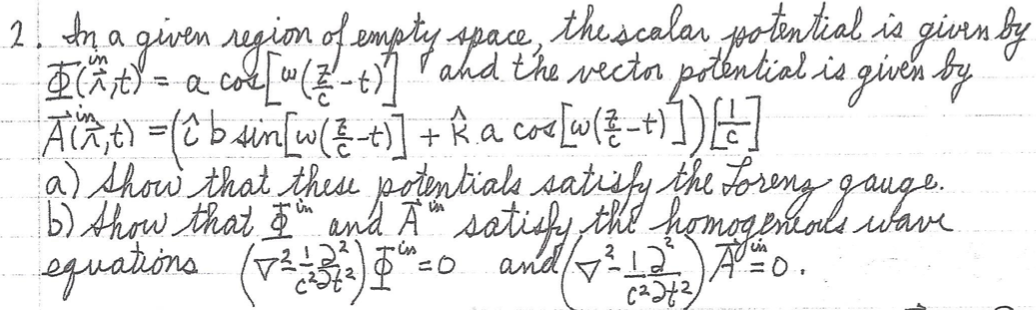 2. In a given region of empty space, the scalar potential is given by
Φ^in(r⃗,t) = a cos[ω(z/c - t)] and the vector potential is given by
A⃗^in(r⃗,t) = (î b sin[ω(z/c - t)] + k̂ a cos[ω(z/c - t)])[1/c]
a) Show that these potentials satisfy the Lorenz gauge.
b) Show that Φ^in and A⃗^in satisfy the homogeneous wave
equations (∇² - 1/c² ∂²/∂t²) Φ^in = 0 and (∇² - 1/c² ∂²/∂t²) A⃗^in = 0.